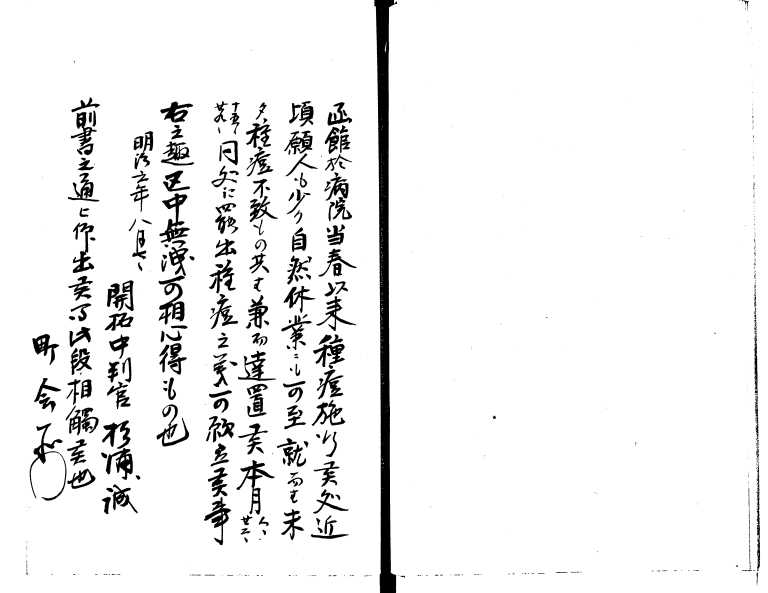 函館於病院当春以来種痘施行候処近
頃願人も少ク自然休業ニも可至就而者未
タ種痘不致もの共者兼而達置候本月
八日
廿二日
十五日
廿九日
同処江罷出種痘之義可願立候事
右之趣区中無洩可相心得もの也
明治五年八月七日
開拓中判官 杉浦誠
前書之通被仰出候間此段相觸候也
町会所